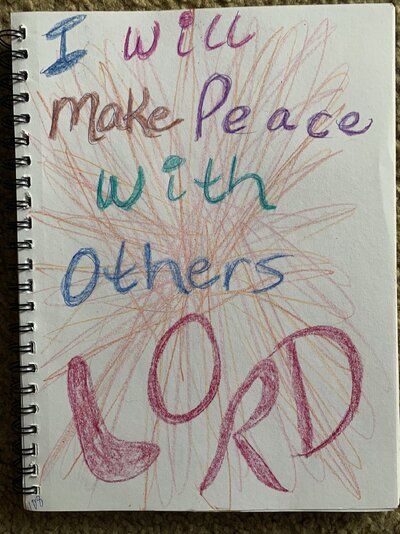 I will
make Peace
with
Others
LORD